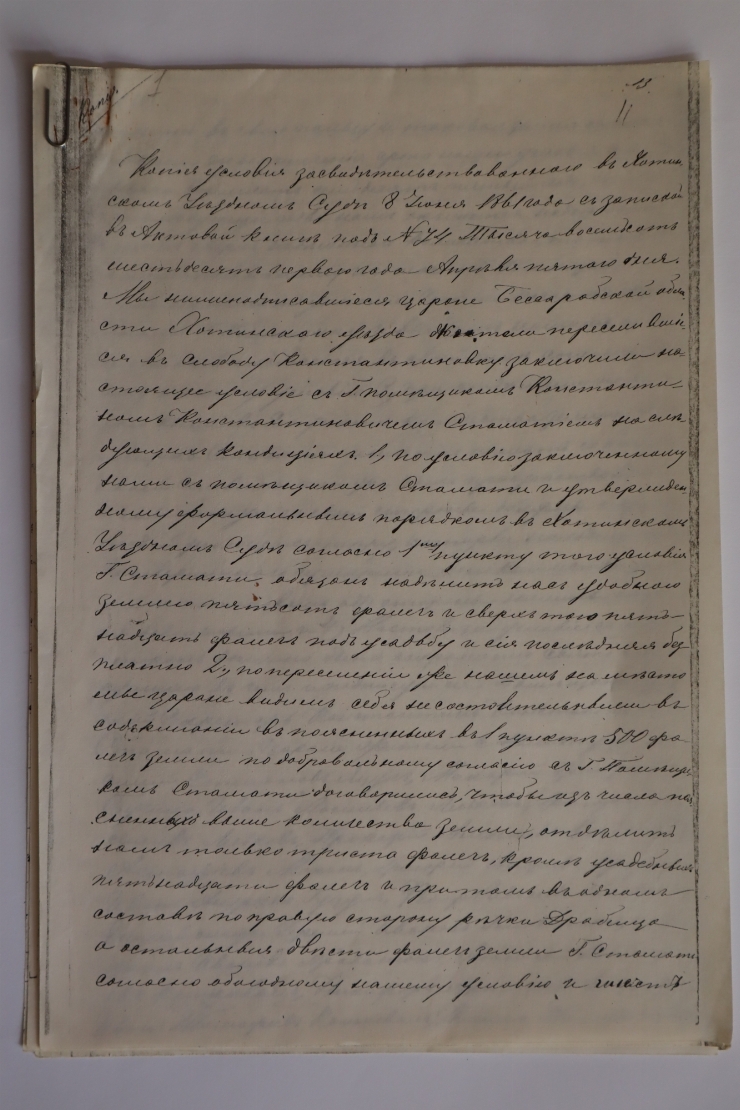 Копія
11
Копія условія засвидѣтельствованнаго въ Хотин-
скомъ Уѣздномъ Судѣ 8 Іюня 1861 года съ запиской
въ Актовой книгѣ подъ № 74 Тысяча восемьсотъ
шестьдесятъ перваго года Апрѣля пятаго дня.
Мы нижеподписавшіеся царане Бессарабской обла
сти Хотинскаго уѣзда переселивші
ся въ слободу Константиновку заключили на
стоящее условіе съ Г помѣщикомъ Константи-
номъ Константиновичемъ Стаматіемъ на слѣ
дующихъ кондиціяхъ 1, по условію заключенному
нами съ помѣщикомъ Стамати и утвержден
ному формальнымъ порядкомъ въ Хотинскомъ
Уѣздномъ Судѣ согласно 1му пункту того условія
Г. Стамати, обязанъ надѣлить насъ удобною
землею пятьсотъ фалечъ и сверхъ того пят-
надцать фалечъ подъ усадьбу и сія послѣдняя без
платно 2, по переселеніи уже нашемъ на мѣсто
мы царане видимъ себя несостоятельными въ
содержаніи въ поясненныхъ въ 1 пунктѣ 500 фа
лечъ земли по добровольному согласію съ Г. Помѣщи
комъ Стамати договорились, чтобы изъ числа по
сненныхъ выше количества земли, отдѣлить
намъ только триста фалечъ, кромѣ усадебныхъ
пятьнадцати фалечъ и при томъ въ одномъ
составѣ по правую сторону рѣчки Драбища
а остальныя двѣсти фалечъ земли Г. Стамати
согласно обоюдному нашему условію и